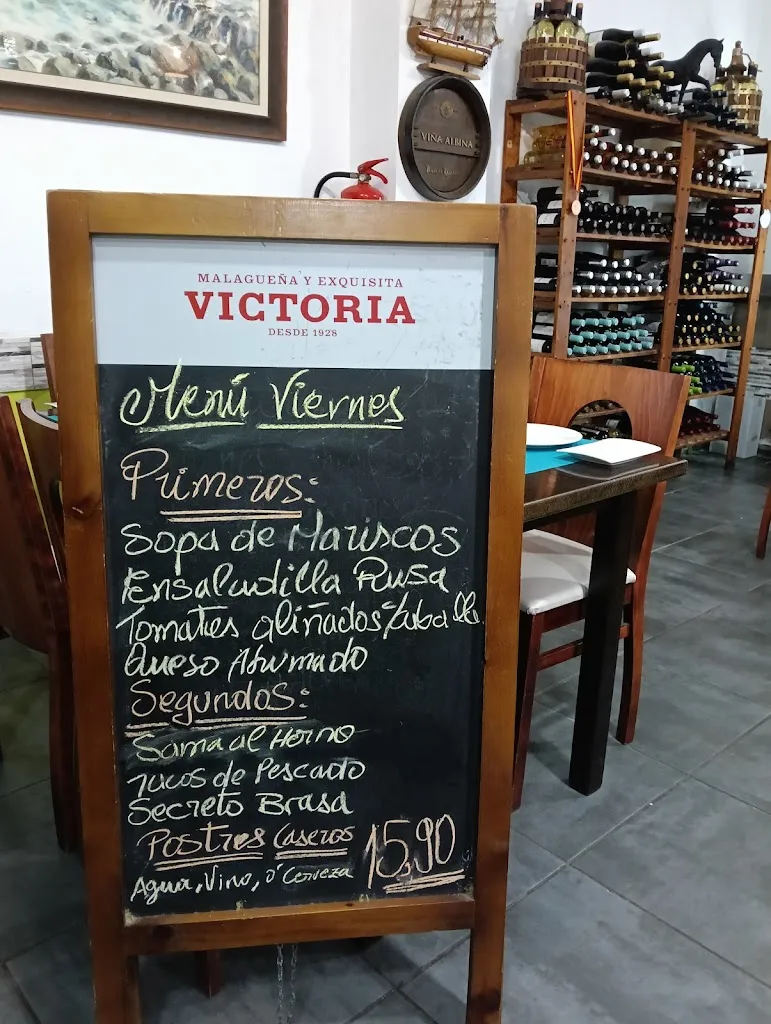 VIÑA ALBINA
MALAGUEÑA Y EXQUISITA
VICTORIA
DESDE 1928
Menú Viernes
Primeros:
Sopa de Mariscos
Ensaladilla Rusa
Tomates aliñados
Queso Ahumado
Segundos:
Sama al Horno
Tacos de Pescado
Secreto Brasa
Postres Caseros 15,90
Agua, Vino, o' Cerveza